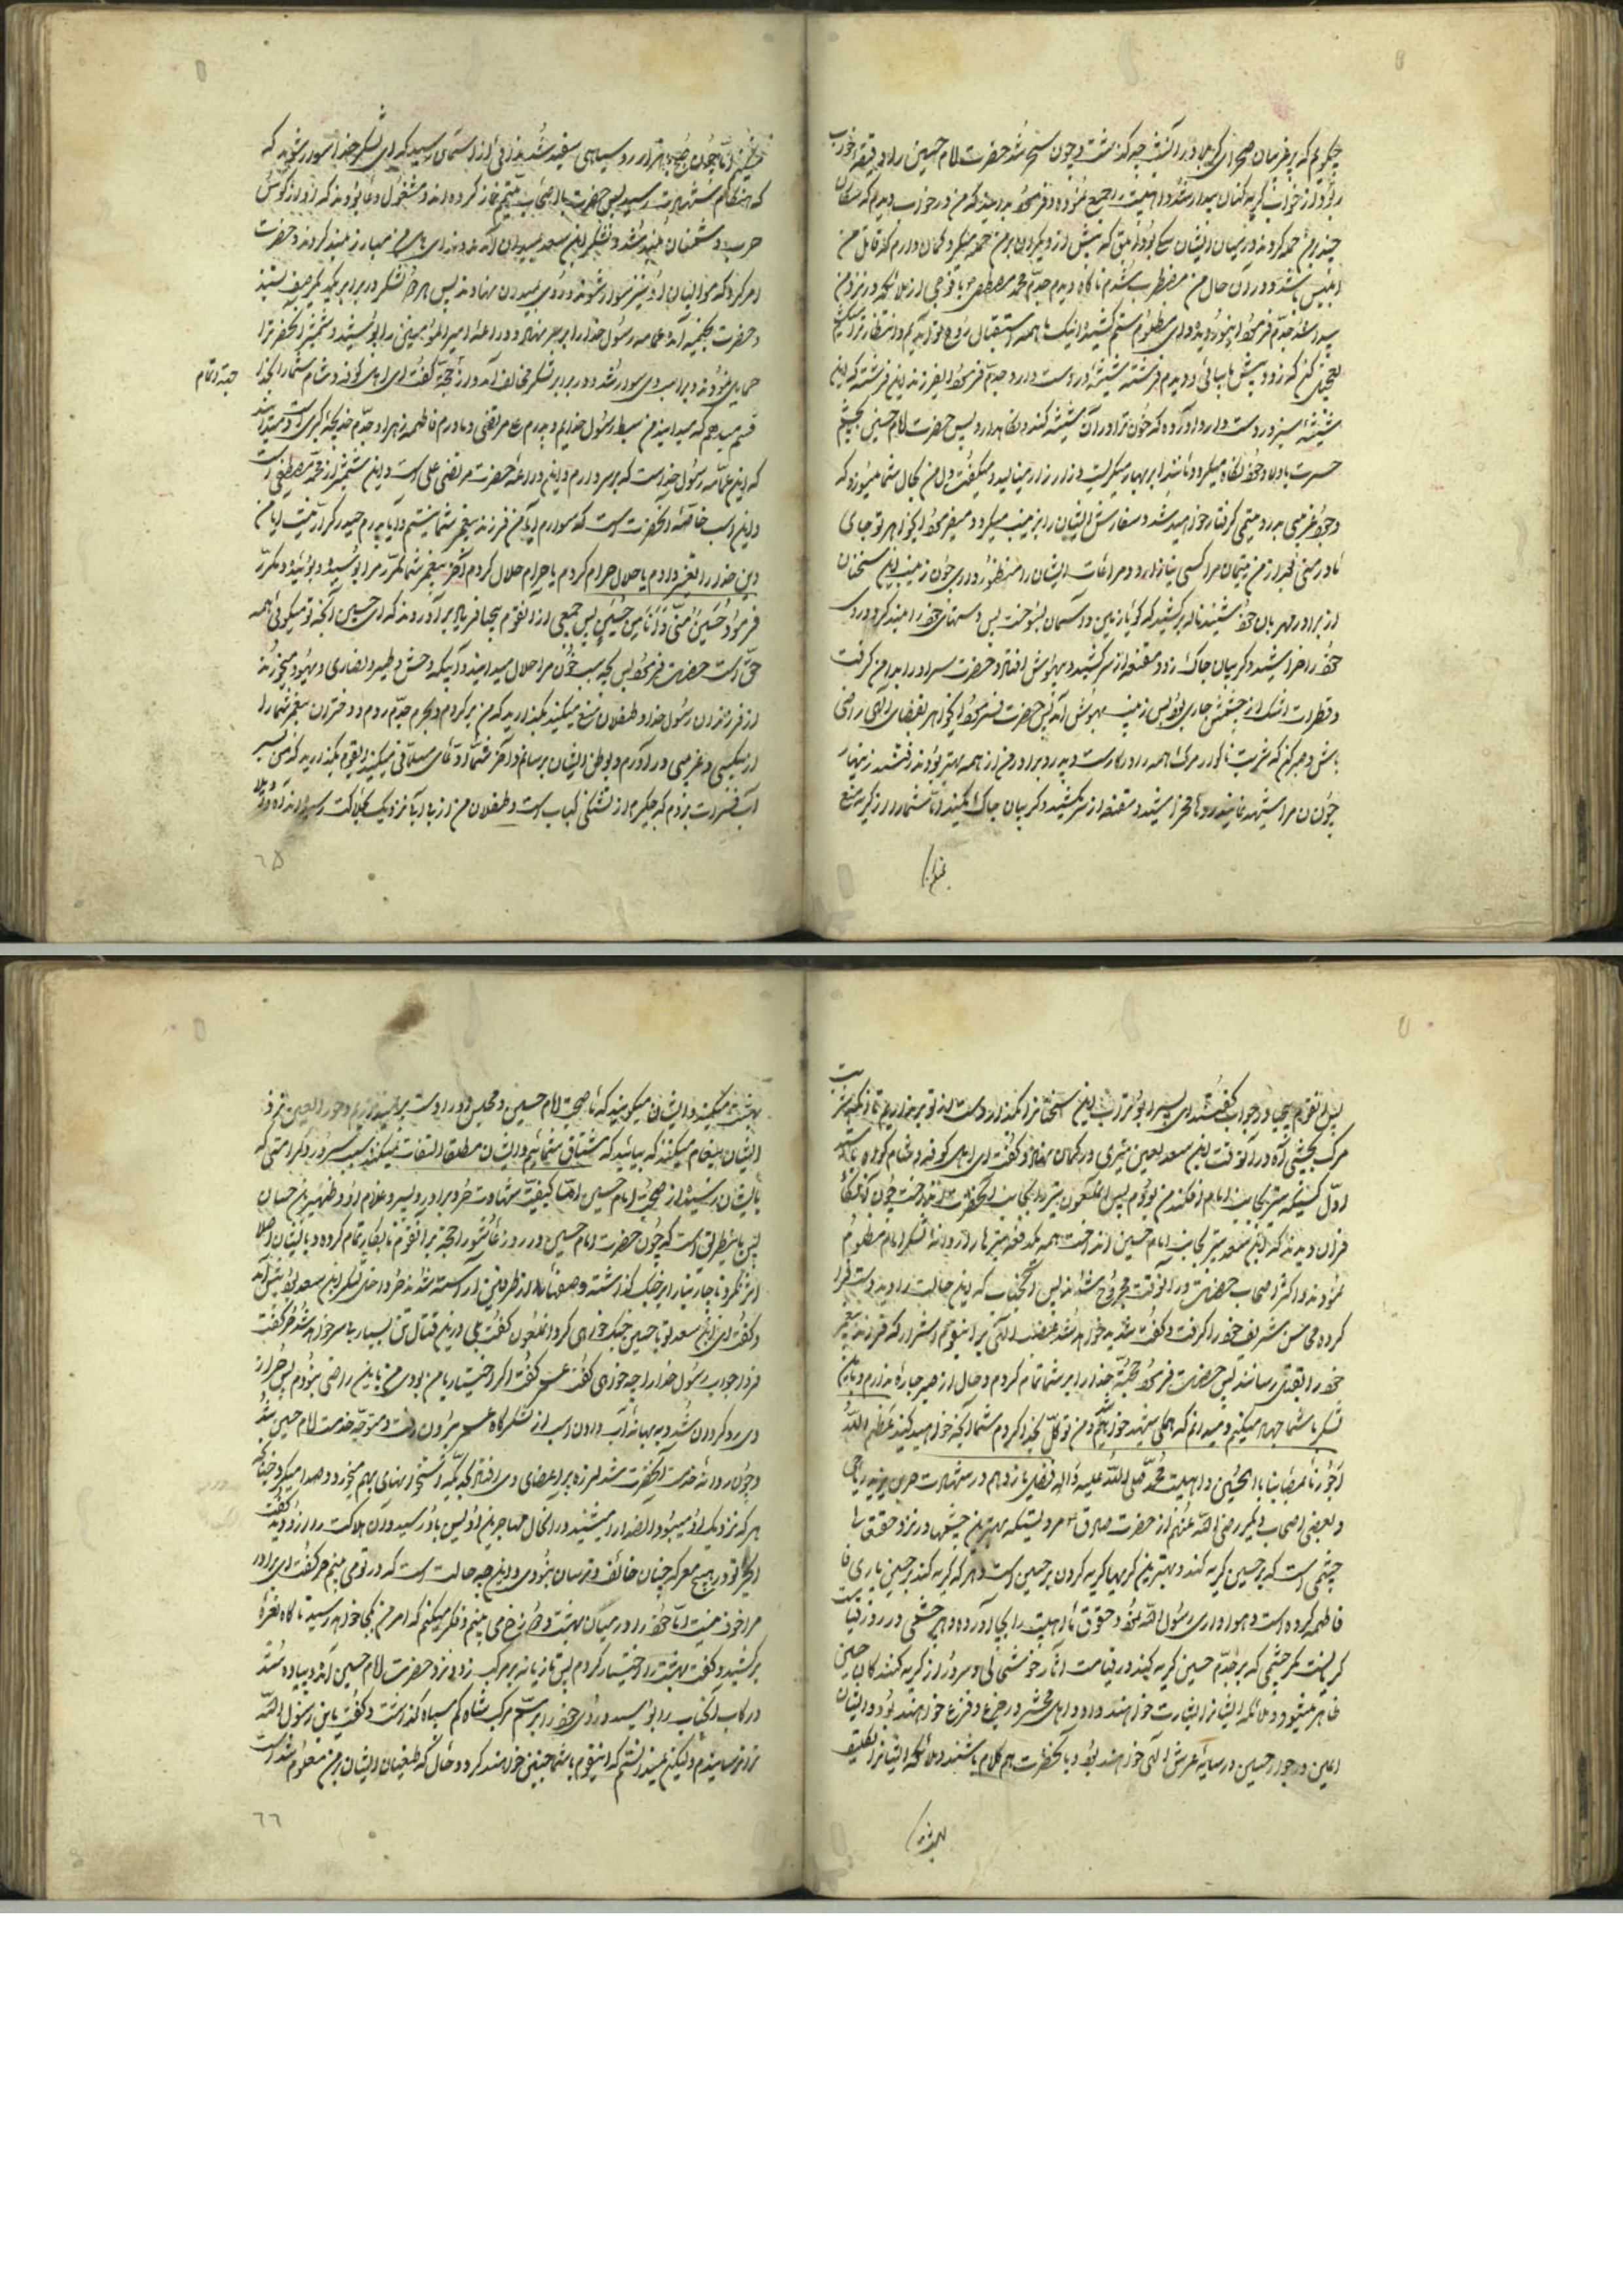 چگویم که بر غریبان صحرای کربلا در آنشب چه گذشت و چون سحر شد حضرت امام حسین را دو دقیقه خواب
ربود از خواب گریه کنان بیدار شد و اهلبیت را جمع نموده و فرمود بدانید که من در خواب دیدم که سگان
چند بر من حمله کردند و در میان ایشان سگی بود ابلق که بیش از دیگران بر من حمله میکرد و گمان دارم که قاتل من
ابلیس باشد و در آن حال من مضطرب شدم ناگاه دیدم جدم محمد مصطفی با فوجی از ملائکه در نزد من
پیدا شد جدم فرمود ای نور دیده و ای مظلوم ستم کشیده اینک ما همه استقبال روح تو آمده ایم و انتظار ترا میکشیم
تعجیل کن که زود پیش ما بیائی و دیدم فرشته شیشه در دست دارد جدم فرمود ای فرزند این فرشته که این
شیشه سبز در دست دارد آورده که خون ترا در آن شیشه کند و نگاهدارد پس حضرت امام حسین بچشم
حسرت باولاد خود نگاه میکرد و مانند ابر بهار میگریست و زار زار مینالید و میگفت دل من بحال شما میسوزد که
بدرد یتیمی گرفتار خواهید شد و سفارش ایشان را بزینب میکرد و میفرمود ای خواهر تو بجای
مادر منی بعد از من یتیمان مرا کسی نیازارد و مراعات ایشان را منظور داری چون زینب این سخنان
از برادر مهربان خود شنید ناله برکشید که گویا زمین و آسمان بسوخت پس دستهای خود را بلند کرد و روی
خود را خراشید و گریبان چاک زد و مقنعه از سر کشید و بیهوش افتاد و حضرت سر او را بدامن گرفت
و قطرات اشک از چشمش جاری بود پس زینب بهوش آمد پس حضرت فرمود ای خواهر بقضای الهی راضی
باش و صبر کن که شربت ناگوار مرگ همه را در کار است و پدر و برادر من از همه بهتر بودند رفتند زینهار
چون مرا شهید نمایند رو مخراشید و مقنعه از سر مکشید و گریبان چاک مکنید اما شما را از گریه منع
نمیکنم
نمیکنم اما چون صبح هزار رو سیاهی سفید شد ندائی از آسمان رسید که ای لشکر خدا سوار شوید که
که هنگام شهادت رسید پس حضرت با اصحاب تیمم نماز کرده اند و مشغول دعا بودند که آواز کوس
حرب دشمنان بلند شد و لشکر ابن سعد بمیدان آمدند و ندای هل من مبارز بلند کردند و حضرت
امر کرد که موالیان او نیز سوار شوند و روی بمیدان نهادند پس هر دو لشکر در برابر یکدیگر صف بستند
و حضرت بخیمه آمد عمامه رسول خدا را بر سر نهاد و دراعه امیرالمؤمنین را پوشید و شمشیر آنحضرت را
حمایل نموده و بر اسب وی سوار شد و در برابر لشکر مخالف آمد و از حجت گفت ای اهل کوفه و شام شما را بخدا
حجة امام
قسم میدهم که میدانید من سبط رسول خدایم و پدرم علی مرتضی و مادرم فاطمه زهرا و جدم خدیجه کبری است و میدانید
که این عمامه رسول خداست که بر سر دارم و این دراعه حضرت مرتضی علی است و این شمشیر از محمد مصطفی است
و این اسب خاصه آنحضرت است که سوارم آیا من فرزند پیغمبر شما نیستم و آیا پدرم حیدر کرار نیست آیا من
دین خدا را تغییر دادم یا حلال حرام کردم یا حرام حلال کردم آخر پیغمبر شما مکرر مرا بوسید و بوئید و مکرر
فرمود حسین منی و انا من حسین پس جمعی از آنقوم بیحیا فریاد برآوردند که ای حسین آنچه تو میگوئی همه
حق است حضرت فرمود پس بچه سبب خون مرا حلال میدانید و آبیکه وحش و طیر و نصاری و یهود میخورند
از فرزندان رسول خدا و طفلان منع میکنید بگذارید که من برگردم و بحرم جدم روم و دختران پیغمبر شما را
از بیکسی و غریبی درآورم و بوطن ایشان برسانم و آخر شما ادعای مسلمانی میکنید ایقوم بگذارید که من بسر
آب فرات بروم که جگرم از تشنگی کباب است و طفلان من از بی آبی نزدیک بهلاکت رسیده اند
٦٥
پس آنقوم بیحیا در جواب گفتند ای پسر ابوتراب این سخنان را بگذار دست از تو بر نداریم تا آنکه شربت
مرگ بچشی آه در آنوقت ابن سعد لعین تیری در کمان نهاد و گفت ای اهل کوفه و شام گواه باشید
اول کسیکه تیر بجانب امام افکند من بودم پس آن ملعون تیر را بجانب آنحضرت انداخت چون آن
دیدند که ابن سعد تیر بجانب امام حسین انداخت همه یکدفعه تیرها روانه لشکر امام مظلوم
نمودند و اکثر اصحاب حضرت در آنوقت مجروح شدند پس آنجناب که این حالت را دید دست فرا
کرده محاسن شریف خود را گرفت و گفت شدید خواهد شد غضب الهی بر این قوم اشرار که فرزند پیغمبر
خود را بقتل رسانند پس حضرت فرمود حجت خدا را بر شما تمام کردم و حال از صبر چاره ندارم و با این
لشکر با شما جهاد میکنم و میدانم که همگی شهید خواهیم و من توکل بخدا کردم شما آنچه خواهید کنید عظم الله
اجورنا بمصابنا بالحسین و اهلبیت محمد صلی الله علیه و آله فصل یازدهم در شهادت حر بن یزید ریاحی
و بعضی اصحاب دیگر رضی الله عنهم از حضرت صادق مرویستکه بهترین چشمها در نزد حقتعالی
چشمی است که بر حسین گریه کند و بهترین گریها گریه کردن بر حسین است و هر که گریه کند بر حسین یاری
فاطمه کرده است و هواداری رسول الله نموده و حقوق ما اهلبیت را بجا آورده و هر چشمی در روز قیامت
گریانست مگر چشمی که بر جدم حسین گریه کند و در قیامت آثار خوشحالی و سرور از گریه کنندگان حسین
ظاهر میشود و ملائکه ایشانرا بشارت خواهند داد و اهل محشر در جزع و فزع خواهند بود و ایشان
ایمن در جوار حسین در سایه عرش الهی خواهند بود و با آنحضرت هم کلام باشند و ملائکه ایشانرا تکلیف
بهشت
بهشت میکنند و ایشان میگویند که ما صحبت امام حسین و مجلس او را دوست تر میداریم و حور العین نزد
ایشان پیغام میکنند که بیائید که مشتاق شمائیم و ایشان مطلقا التفات نمیکنند بسبب سرور و کرامتی که
بایشان رسیده از صحبت امام حسین اما کیفیت شهادت حر و برادر و پسر و غلام او و ظهیر بن حسان
پس باینطریق است که چون حضرت امام حسین در روز عاشورا حجت بر آنقوم نابکار تمام کرده و بایشان اصلا
اثر نکرد ناچار بنا بر جنگ گذاشته و صفها از طرفین آراسته شد حر داخل لشکر ابن سعد بود پیش آمد
و گفت ای ابن سعد تو با حسین جنگ خواهی کرد آن ملعون گفت بلی در این قتال تن بسیار بی سر خواهد شد حر گفت
فردا جواب رسول خدا را چه خواهی گفت عمر گفت اگر اختیار با من بودی من باین راضی نبودم پس حر از
وی رو گردان شد و ببهانه آب دادن اسب از لشکرگاه عمر بیرون رفت و متوجه خدمت امام حسین شد
و چون روانه خدمت آنحضرت شد لرزه بر اعضای وی افتاد که استخوانهای بهم میخورد و صدا میکرد چنانکه
هر که نزدیک او میبود آن صدا را میشنید در آنحال مهاجر بن اوس باو رسید و آن حالت را از او دید گفت
ای حر تو در هیچ معرکه چنان خائف و ترسان نبودی و این چه حالت است که در تو می بینم حر گفت ای برادر
مرا خوف نیست اما خود را در میان بهشت و دوزخ می بینم و فکر میکنم که امر من بکجا خواهد رسید ناگاه نعره
برکشید و گفت بهشت را اختیار کردم پس تازیانه بر مرکب زد و نزد حضرت امام حسین آمد و پیاده شد
در رکاب آنجناب را بوسید و روی خود را بر سم مرکب شاه کم سپاه گذاشت و گفت یا بن رسول الله
ترا ترسانیدم ولیکن نمیدانستم که اینقوم با شما چنین خواهند کرد و حال که طغیان ایشان بر من معلوم شد
٦٦